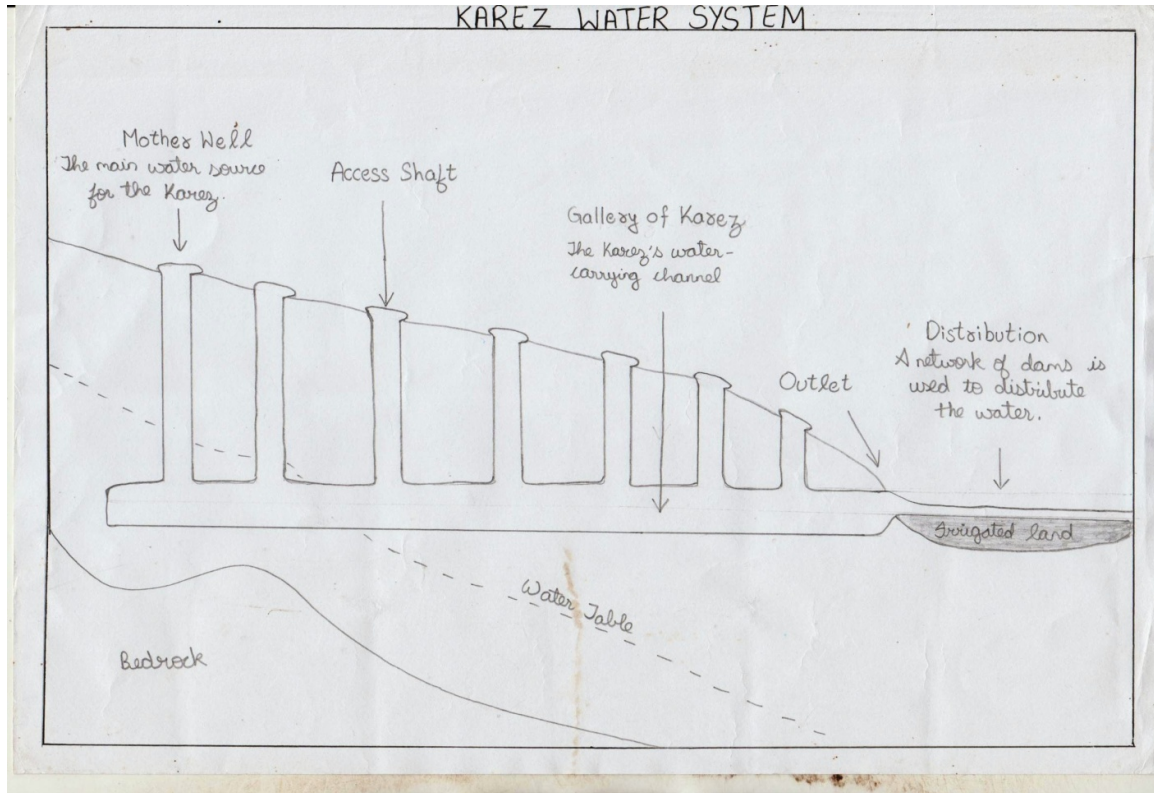 KAREZ WATER SYSTEM
Mother Well
The main water source
for the Karez.
Access Shaft
Gallery of Karez
The Karez's water-
carrying channel
Distribution
A network of dams is
used to distribute
the water.
Outlet
Irrigated land
Water Table
Bedrock